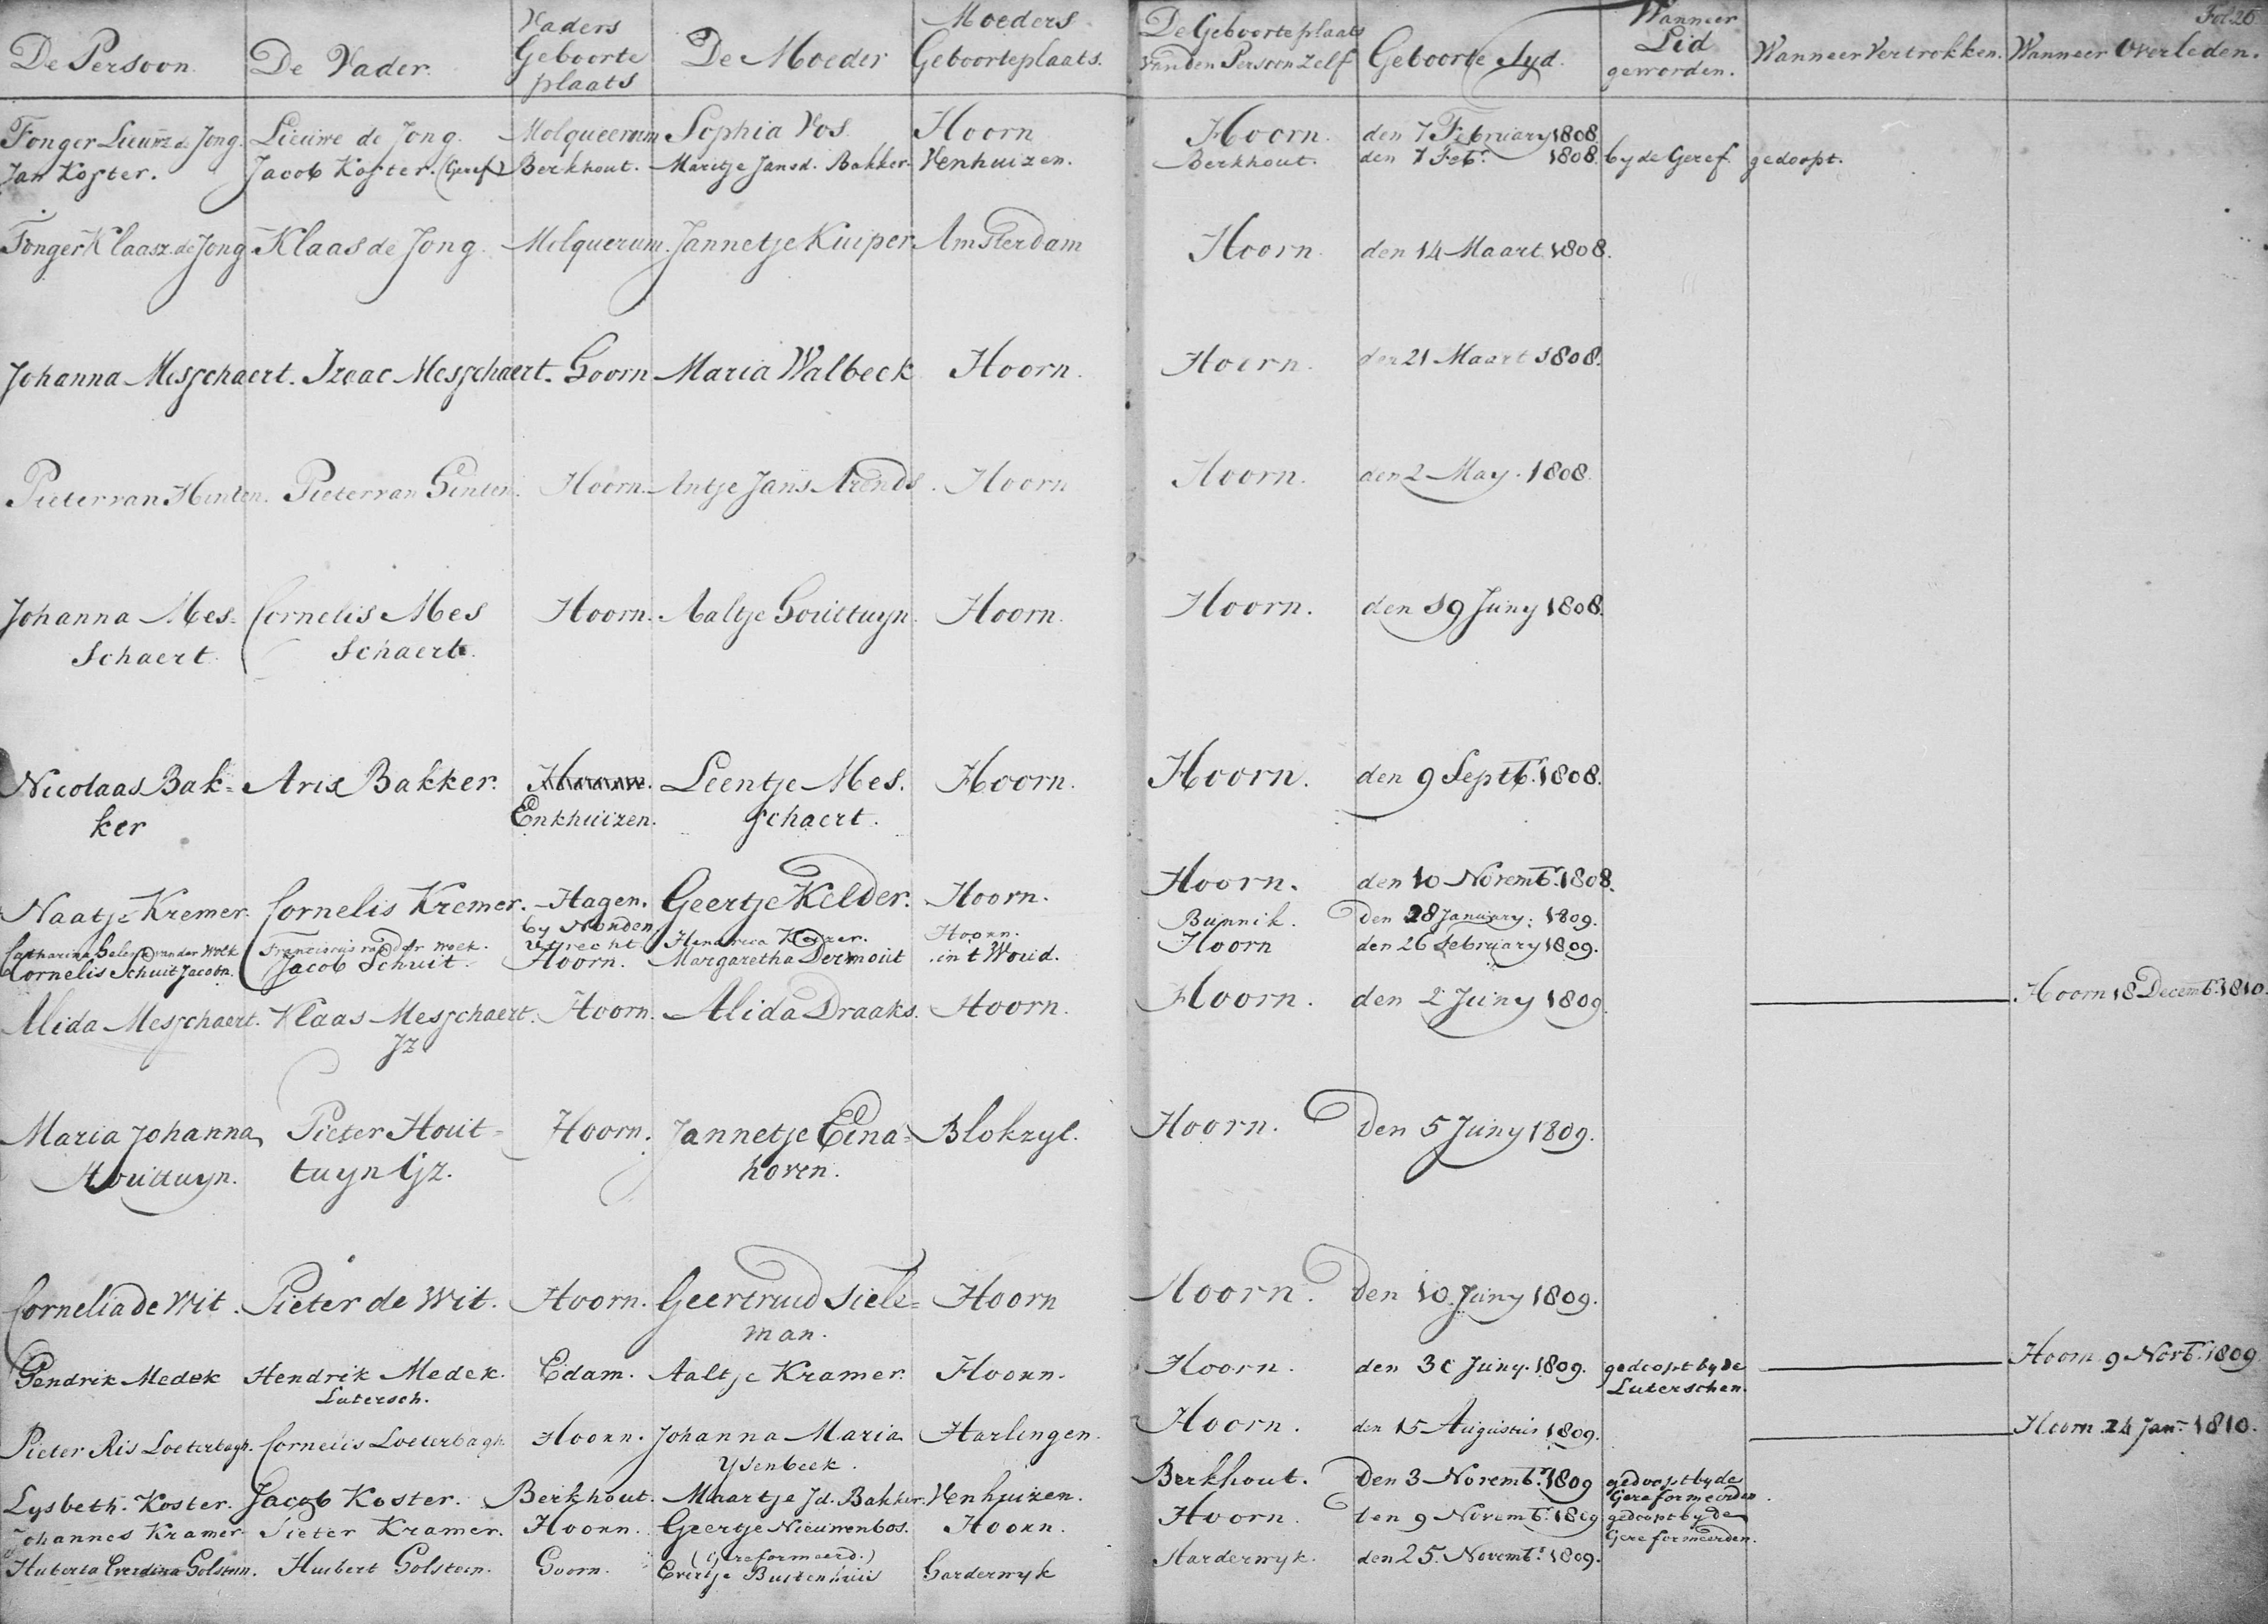 De Persoon. De Vader. Vaders Geboorte plaats De Moeder Moeders Geboorteplaats. De Geboorteplaats van den Persoon zelf Geboorte Tyd. Wanneer Lid geworden. Wanneer Vertrokken. Wanneer Overleden. Fol 26
Fonger Lieuwz de Jong. Lieuwe de Jong. Molqueerum Sophia Vos. Hoorn Hoorn. den 7 February 1808
Jan Koster. Jacob Koster. (Geref) Berkhout. Maritje Jansd. Bakker Venhuizen. Berkhout. den 7 Febr. 1808. by de Geref. gedoopt.
Fonger Klaasz. de Jong Klaas de Jong. Molquerum. Jannetje Kuiper Amsterdam Hoorn. den 14 Maart 1808.
Johanna Messchaert. Izaac Messchaert. Hoorn Maria Walbeck Hoorn. Hoorn. den 21 Maart 1808.
Pieter van Hinten. Pieter van Hinten. Hoorn. Antje Jans Arends. Hoorn Hoorn. den 2 May. 1808.
Johanna Mes= Cornelis Mes Hoorn. Aaltje Houttuyn. Hoorn. Hoorn. den 19 Juny 1808.
schaert. schaert.
Nicolaas Bak= Arix Bakker. Leentje Mes. Hoorn. Hoorn. den 9 Septb. 1808.
ker Enkhuizen. schaert.
Naatje Kremer. Cornelis Kremer. Hagen. Geertje Kelder. Hoorn. Hoorn. den 10 Novemb. 1808.
by Norden
Catharina van der Woek Franciscus van der Woek. Utrecht Hendrica Hoorn. Bunnik. Den 28 January. 1809.
Cornelis Schuit Jacobn. Jacob Schuit. Hoorn. Margaretha Dermout in t Woud. Hoorn den 26 February 1809.
Alida Messchaert. Klaas Messchaert. Hoorn. Alida Draaks. Hoorn. Hoorn. den 2 Juny 1809. Hoorn 18 Decemb. 1810.
Jz
Maria Johanna Pieter Hout= Hoorn. Jannetje Eina= Blokzyl. Hoorn. Den 5 Juny 1809.
Houttuyn. tuyn Gz. hoven.
Cornelia de Wit. Pieter de Wit. Hoorn. Geertruid Siele= Hoorn Hoorn. Den 10 Juny 1809.
man.
Hendrik Medek Hendrik Medek. Edam. Aaltje Kramer. Hoorn. Hoorn. den 30 Juny. 1809. gedoopt by de Hoorn. 9 Novb. 1809
Lutersch. Luterschen.
Pieter Ris Loeterbagh. Cornelis Loeterbagh Hoorn. Johanna Maria Harlingen. Hoorn. den 15 Augustus 1809. Hoorn. 24 Jan. 1810.
Ysenbeek.
Lysbeth. Koster. Jacob Koster. Berkhout. Maartje Jd. Bakker. Venhuizen. Berkhout. Den 3 Novemb. 1809 gedoopt by de
Gereformeerden.
Johannes Kramer Pieter Kramer. Hoorn. Geertje Nieuwenbos. Hoorn. Hoorn. den 9 Novemb. 1809 gedoopt by de
(Gereformeerd.) Gereformeerden.
Huberta Everdina Holstein. Huibert Holstein. Hoorn. Evertje Buitenhuis Harderwyk Harderwyk. den 25. Novemb. 1809.